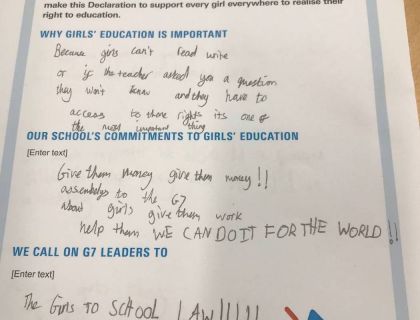 make this Declaration to support every girl everywhere to realise their
right to education.
WHY GIRLS' EDUCATION IS IMPORTANT
Because girls can't read write
or if the teacher asked you a question
they won't know and they have to
access to there rights its one of
the most important thing
OUR SCHOOL'S COMMITMENTS TO GIRLS' EDUCATION
[Enter text]
Give them money give them money!!
assembelys to the G7
about girls give them work
help them WE CAN DO IT FOR THE WORLD!!
WE CALL ON G7 LEADERS TO
[Enter text]
The Girls TO SCHOOL LAW!!!!!